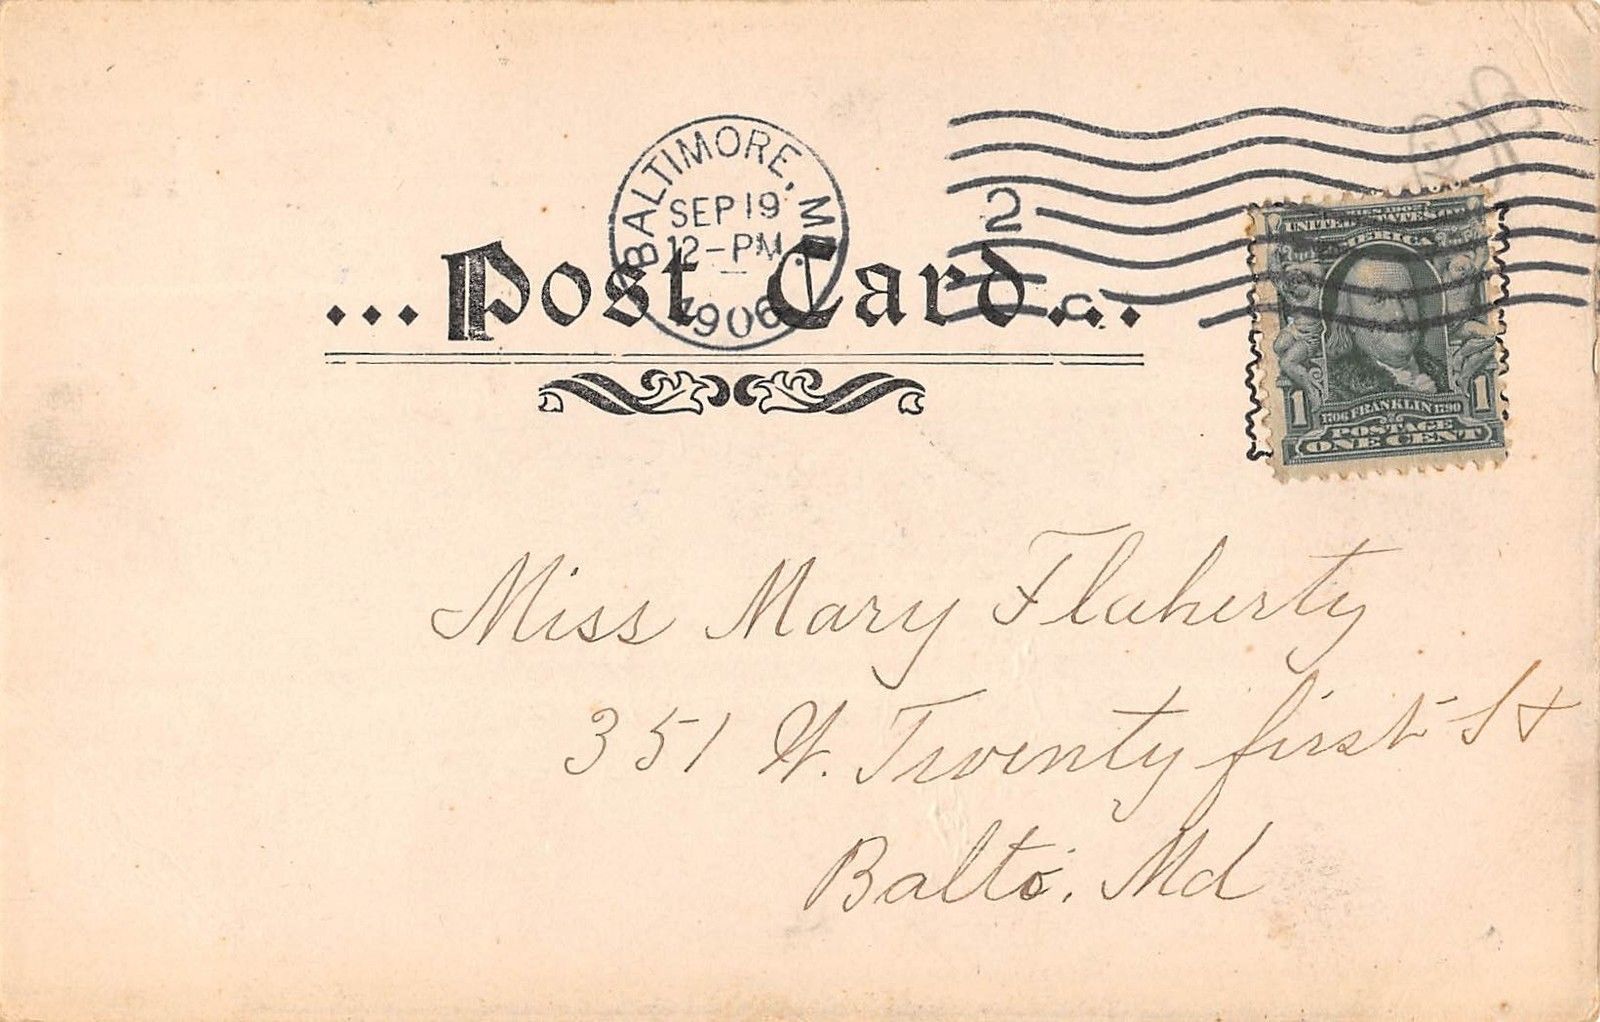 BALTIMORE, MD.
SEP 19
12-PM
1906
2
C
...Post Card...
UNITED STATES OF
AMERICA
1 1
1706 FRANKLIN 1790
POSTAGE
ONE CENT
Miss Mary Flaherty
351 W. Twenty first St
Balto. Md